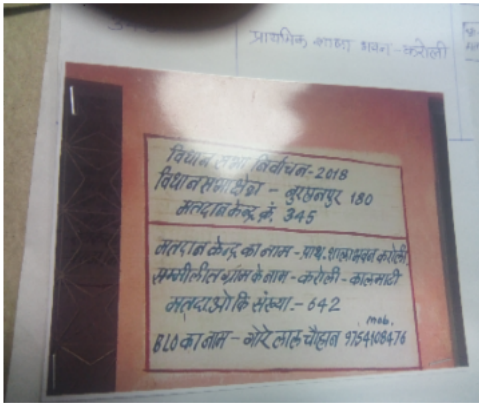 प्राथमिक शाला भवन - करोली
विधान सभा निर्वाचन-2018
विधानसभा क्षेत्र - बुरहानपुर 180
मतदान केन्द्र क्रं. 345
मतदान केन्द्र का नाम - प्राथ. शाला भवन करोली,
सम्मीलीत ग्राम के नाम - करोली - कालमाटी
मतदाओ कि संख्या.- 642
mob.
BLO का नाम - गोरे लाल चौहान 9754108476